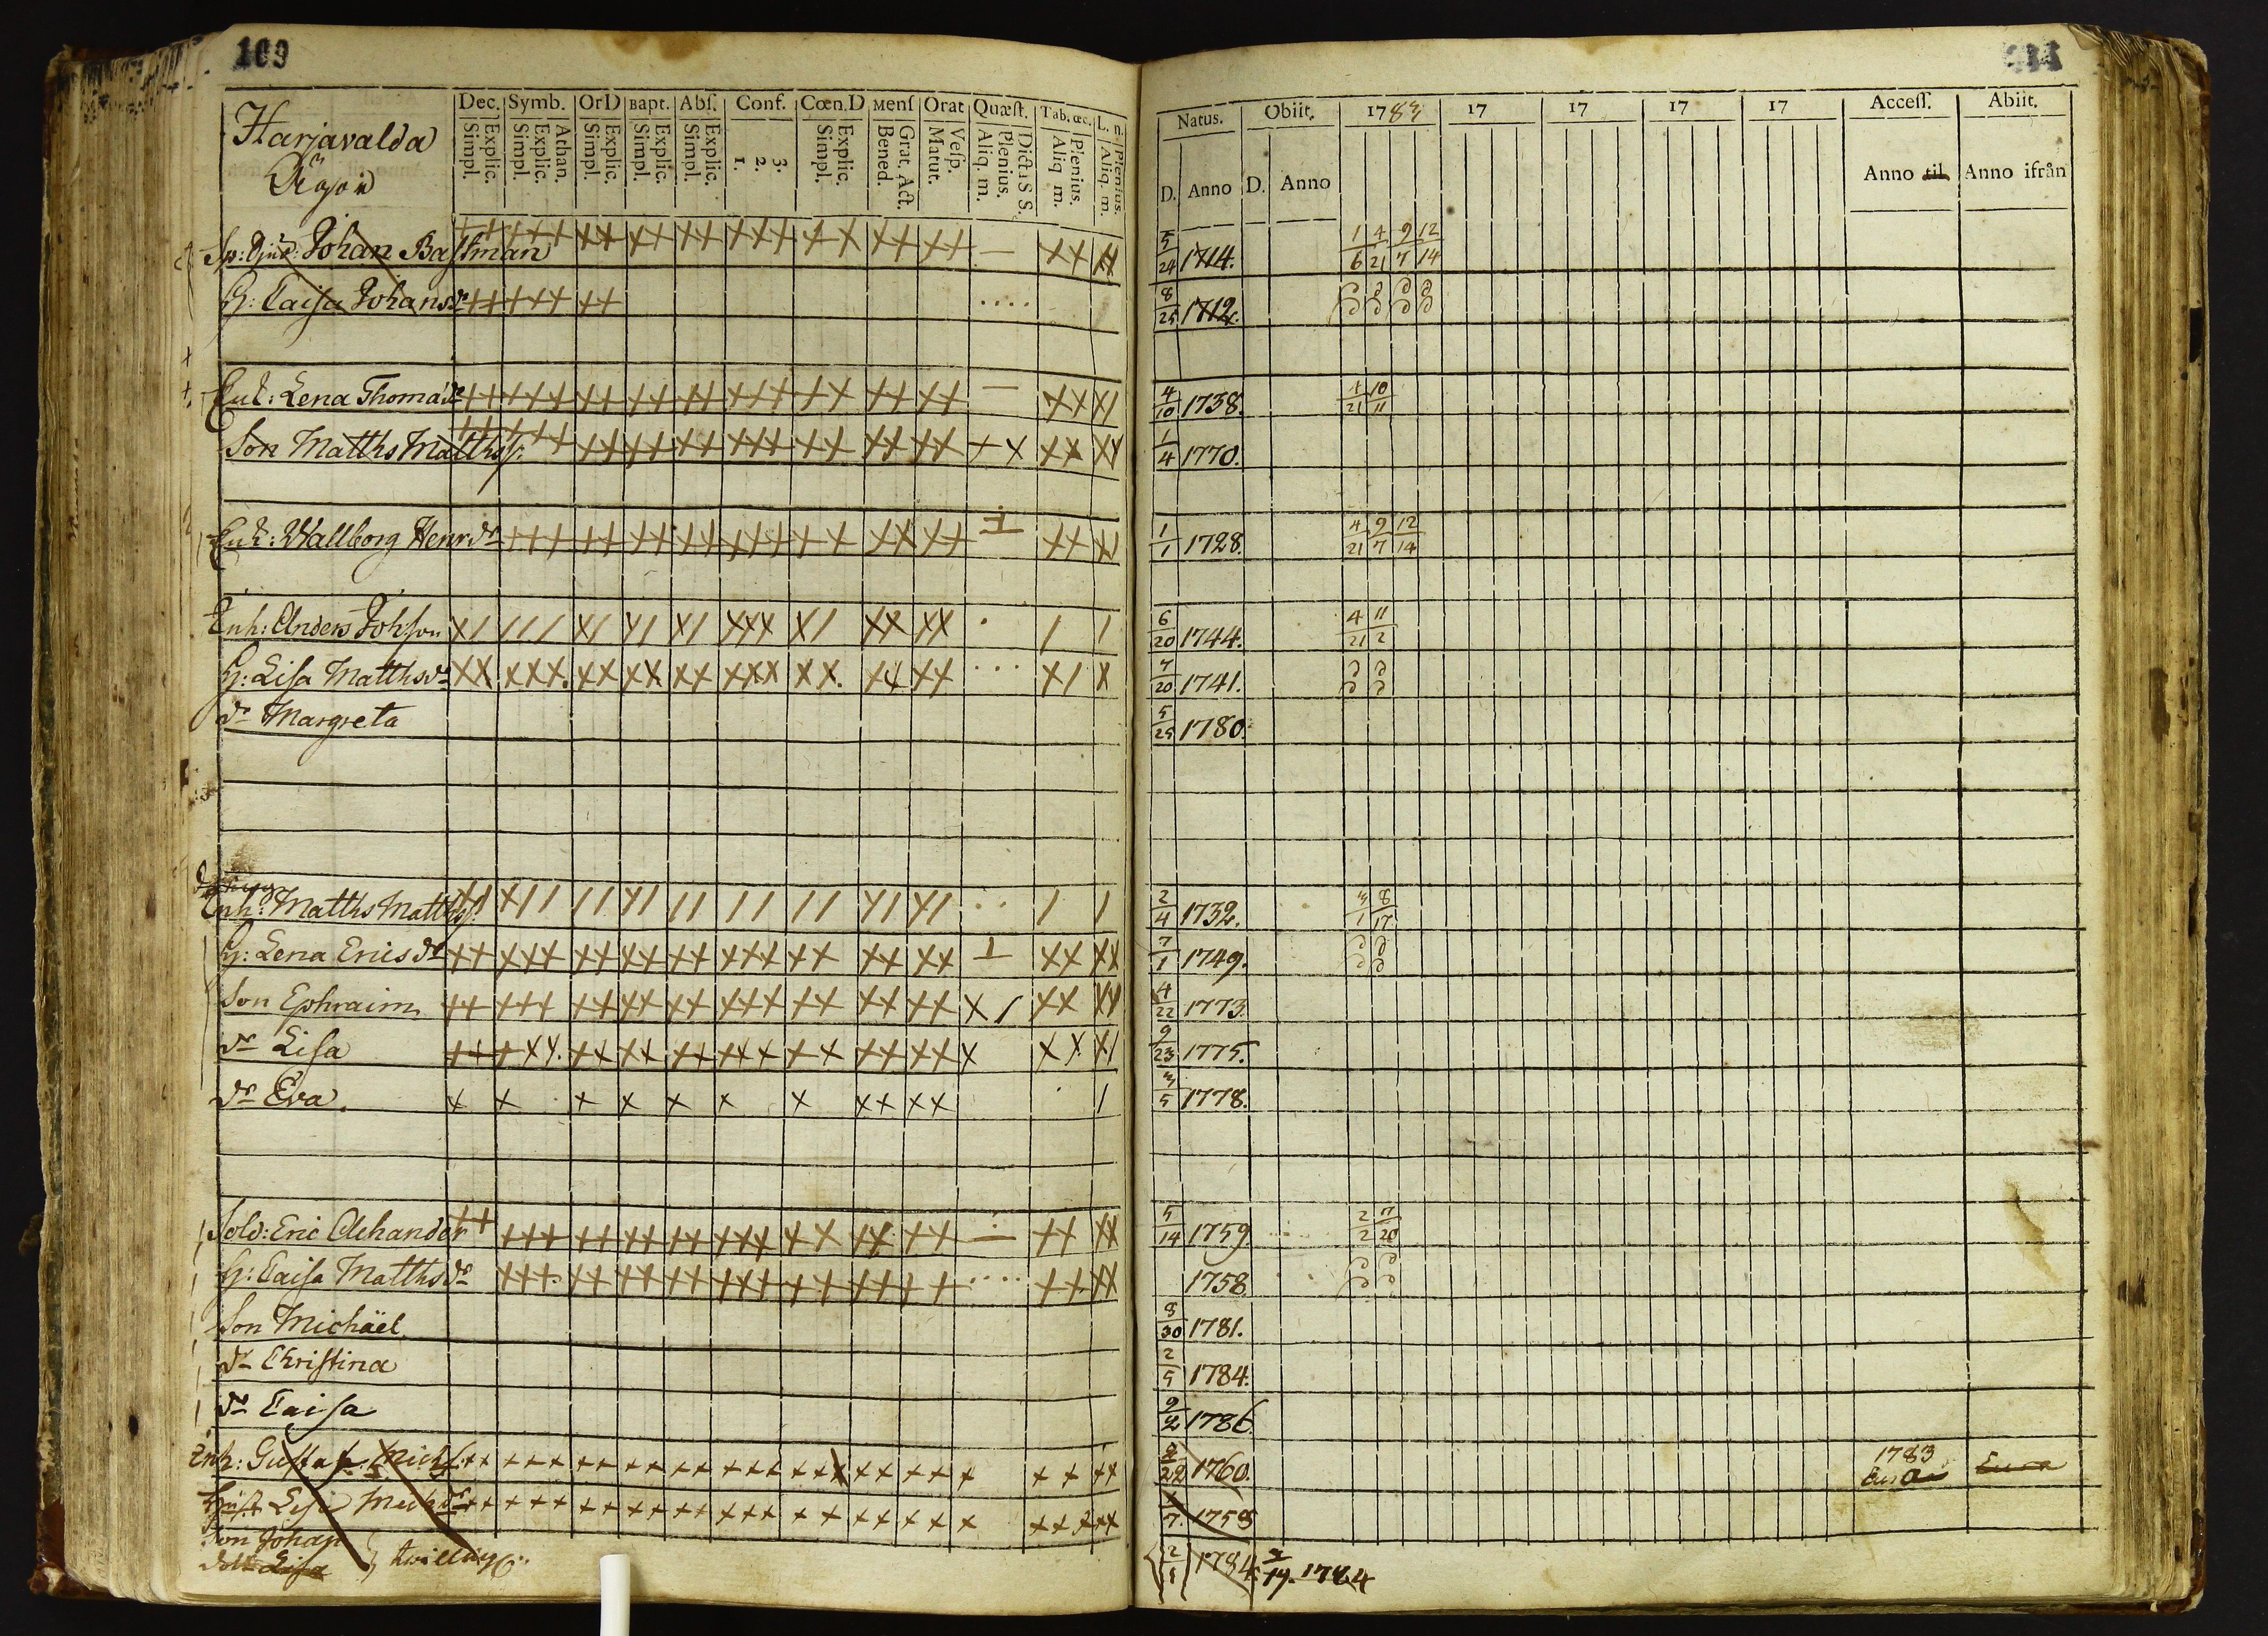 109
Harjavalda
Dec. Symb. OrD Bapt. Abſ. Conf. Cœn.D Menſ Orat Quæſt. Tab. œc. L. n.
Explic. Simpl. Athan. Explic. Simpl. Explic. Simpl. Explic. Simpl. Explic. Simpl. 3. 2. 1. Explic. Simpl. Grat. Act. Bened. Veſp. Matut. Dict. S S. Plenius. Aliq. m. Plenius. Aliq m. Plenius. Aliq. m.
Johan Baſtman
H: Caiſa Johansdr
Enk: Lena Thomadr
Son Matths Matthsſ.
Enk: Wallborg Henrdr
Inh: Anders Johſon
H: Liſa Matthsdr
dr Margreta
Inh: Matths Matthsſ.
H: Lena Ericsdr
Son Ephraim
dr Liſa
dr Eva.
Sold: Eric Alehander
H: Caiſa Matthsdr
Son Michäel
dr Chriſtina
dr Caiſa
Inh: Guſtaf Michſ.
Huſt Liſa Michdr
Son Johan
dott Liſa } twilling
Natus. Obiit. 1783 17 17 17 17 Acceſſ. Abiit.
D. Anno D. Anno Anno til Anno ifrån
5/24 1714. 1/6 4/21 9/7 12/14
8/25 1712.
4/10 1738. 4/21 10/11
1/4 1770.
1/1 1728. 4/21 9/7 12/14
6/20 1744. 4/21 11/2
7/20 1741.
5/25 1780.
2/4 1732. 3/1 8/17
7/1 1749.
4/22 1773.
9/23 1775.
3/5 1778.
5/14 1759. 2/2 7/20
1758
8/30 1781.
2/5 1784.
9/2 1786.
1760. 1783
Eura Eura
1758
2/1 1784. 1784